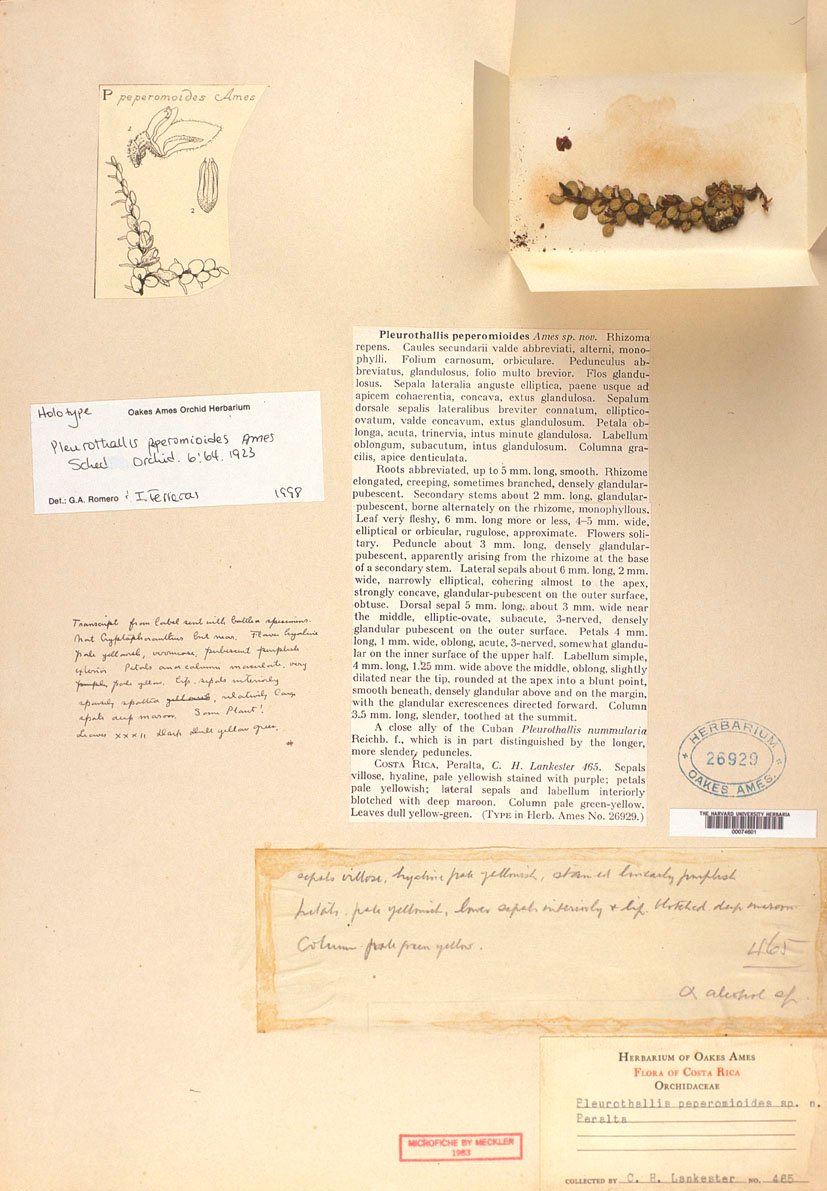 P peperomoides Ames
1
2
Pleurothallis peperomioides Ames sp. nov. Rhizoma
repens. Caules secundarii valde abbreviati, alterni, mono-
phylli. Folium carnosum, orbiculare. Pedunculus ab-
breviatus, glandulosus, folio multo brevior. Flos glandu-
losus. Sepala lateralia anguste elliptica, paene usque ad
apicem cohaerentia, concava, extus glandulosa. Sepalum
dorsale sepalis lateralibus breviter connatum, elliptico-
ovatum, valde concavum, extus glandulosum. Petala ob-
longa, acuta, trinervia, intus minute glandulosa. Labellum
oblongum, subacutum, intus glandulosum. Columna gra-
cilis, apice denticulata.
Roots abbreviated, up to 5 mm. long, smooth. Rhizome
elongated, creeping, sometimes branched, densely glandular-
pubescent. Secondary stems about 2 mm. long, glandular-
pubescent, borne alternately on the rhizome, monophyllous.
Leaf very fleshy, 6 mm. long more or less, 4–5 mm. wide,
elliptical or orbicular, rugulose, approximate. Flowers soli-
tary. Peduncle about 3 mm. long, densely glandular-
pubescent, apparently arising from the rhizome at the base
of a secondary stem. Lateral sepals about 6 mm. long, 2 mm.
wide, narrowly elliptical, cohering almost to the apex,
strongly concave, glandular-pubescent on the outer surface,
obtuse. Dorsal sepal 5 mm. long, about 3 mm. wide near
the middle, elliptic-ovate, subacute, 3-nerved, densely
glandular pubescent on the outer surface. Petals 4 mm.
long, 1 mm. wide, oblong, acute, 3-nerved, somewhat glandu-
lar on the inner surface of the upper half. Labellum simple,
4 mm. long, 1.25 mm. wide above the middle, oblong, slightly
dilated near the tip, rounded at the apex into a blunt point,
smooth beneath, densely glandular above and on the margin,
with the glandular excrescences directed forward. Column
3.5 mm. long, slender, toothed at the summit.
A close ally of the Cuban Pleurothallis nummularia
Reichb. f., which is in part distinguished by the longer,
more slender, peduncles.
Costa Rica, Peralta, C. H. Lankester 465. Sepals
villose, hyaline, pale yellowish stained with purple; petals
pale yellowish; lateral sepals and labellum interiorly
blotched with deep maroon. Column pale green-yellow.
Leaves dull yellow-green. (Type in Herb. Ames No. 26929.)
Holotype Oakes Ames Orchid Herbarium
Pleurothallis peperomioides Ames
Sched Orchid. 6:64. 1923
Det.: G.A. Romero & I. Terracas 1998
Transcript from label sent with bottled specimens.
Not Cryptophoranthus but near. Flower hyaline
pale yellowish, verrucose, pubescent purplish
exterior. Petals and column maculate, very
pale yellow. Lip, sepals interiorly
sparsely spotted yellowish, relatively large
spots deep maroon. Same Plant!
Leaves xxx11 dark dull yellow green.
HERBARIUM
26929
OAKES AMES.
THE HARVARD UNIVERSITY HERBARIA
00074601
sepals villose, hyaline pale yellowish, stained linearly purplish
petals pale yellowish, lower sepals interiorly & lip blotched deep maroon
Column pale green yellow.
465
alcohol sp.
Herbarium of Oakes Ames
Flora of Costa Rica
Orchidaceae
Pleurothallis peperomioides sp. n.
Peralta
COLLECTED BY C. H. Lankester NO. 465
MICROFICHE BY MECKLER
1983